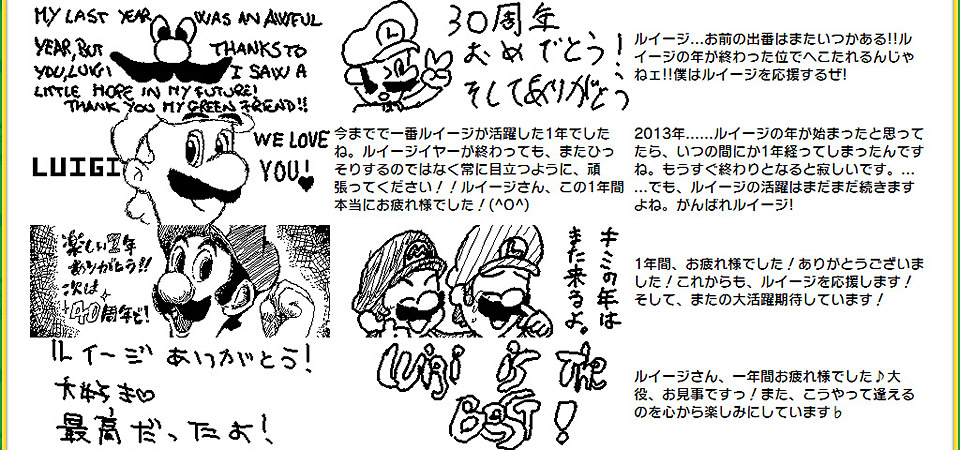 MY LAST YEAR WAS AN AWFUL
YEAR, BUT THANKS TO
YOU, LUIGI I SAW A
LITTLE HOPE IN MY FUTURE!
THANK YOU MY GREEN FRIEND!!
L
30周年
おめでとう!
そしてありがとう
ルイージ…お前の出番はまたいつかある!!ル
イージの年が終わった位でへこたれるんじゃ
ねェ!!僕はルイージを応援するぜ!
LUIGI
WE LOVE
YOU!♥
今までで一番ルイージが活躍した1年でした
ね。ルイージイヤーが終わっても、またひっ
そりするのではなく常に目立つように、頑
張ってください！！ルイージさん、この1年間
本当にお疲れ様でした！(^O^)
2013年……ルイージの年が始まったと思って
たら、いつの間にか1年経ってしまったんです
ね。もうすぐ終わりとなると寂しいです。…
…でも、ルイージの活躍はまだまだ続きます
よね。がんばれルイージ!
楽しい1年
ありがとう!!
次は
40周年だ!
M
L
キミの年は
また来るよ。
1年間、お疲れ様でした！ありがとうございま
した！これからも、ルイージを応援します！
そして、またの大活躍期待しています！
ルイージありがとう!
大好き♡
最高だったよ!
LUIGI is The
BEST!
ルイージさん、一年間お疲れ様でした♪大
役、お見事ですっ！また、こうやって逢える
のを心から楽しみにしています♭